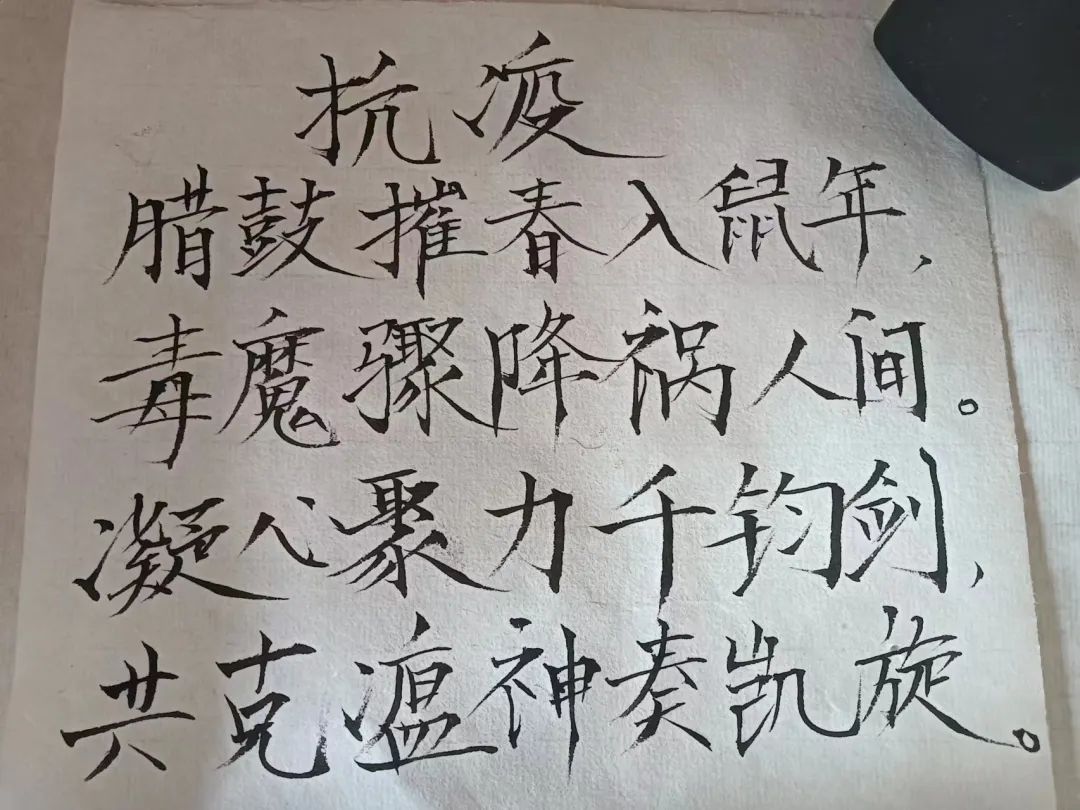 抗疫
腊鼓摧春入鼠年，
毒魔骤降祸人间。
凝心聚力千钧剑，
共克瘟神奏凯旋。